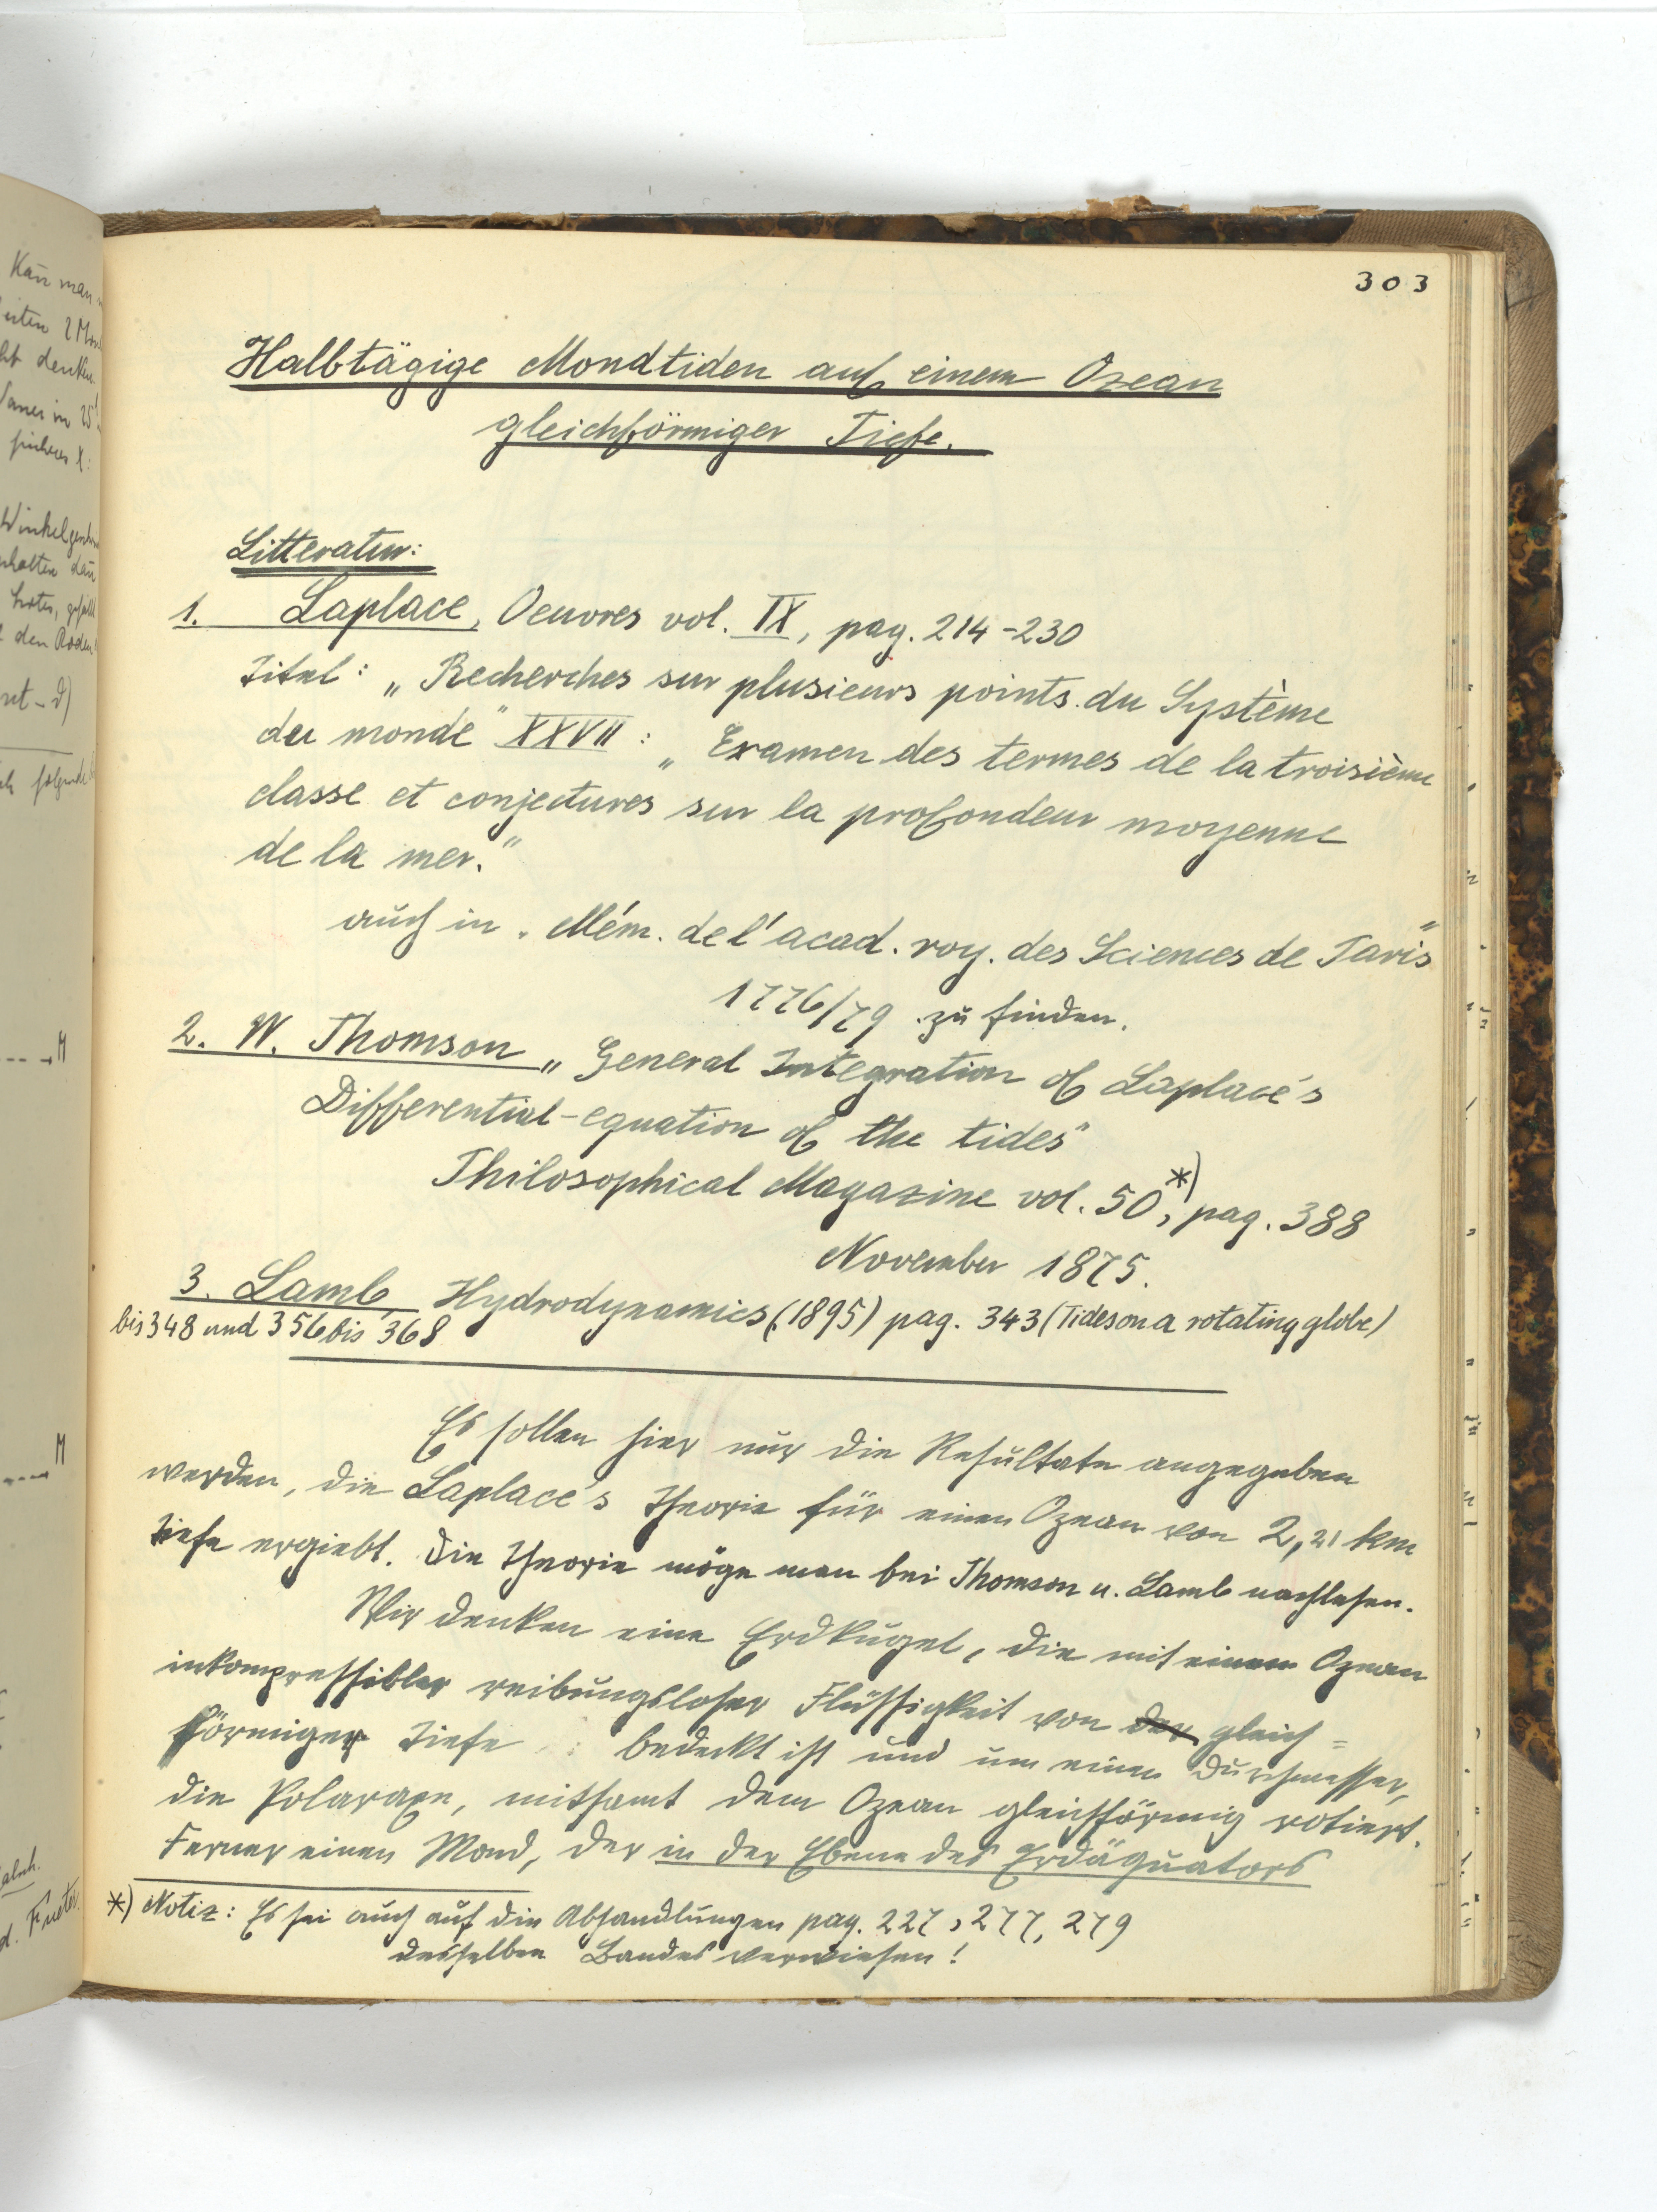 303
Halbtägige Mondtiden auf einem Ozean
gleichförmiger Tiefe.
Litteratur:
1. Laplace, Oeuvres vol. IX, pag. 214-230
Titel: „Recherches sur plusieurs points du Système
du monde" XXVII: „Examen des termes de la troisième
classe et conjectures sur la profondeur moyenne
de la mer."
auch in „Mém. de l'acad. roy. des Sciences de Paris"
1776/79 zu finden.
2. W. Thomson „General Integration of Laplace's
Differential-equation of the tides"
Philosophical Magazine vol. 50,*) pag. 388
November 1875.
3. Lamb, Hydrodynamics (1895) pag. 343 (Tides on a rotating globe)
bis 348 und 356 bis 368
Es sollen hier nur die Resultate angegeben
werden, die Laplace's Theorie für einen Ozean von 2,21 km
Tiefe ergiebt. Die Theorie möge man bei Thomson u. Lamb nachlesen.
Wir denken eine Erdkugel, die mit einem Ozean
inkompressibler reibungsloser Flüssigkeit von der gleich=
förmiger Tiefe bedeckt ist und um einen Durchmesser,
die Polaraxe, mitsamt dem Ozean gleichförmig rotiert.
Ferner einen Mond, der in der Ebene des Erdäquators
*) Notiz: Es sei auch auf die Abhandlungen pag. 227, 277, 279
desselben Bandes verwiesen!
Kan man
denken
M
M